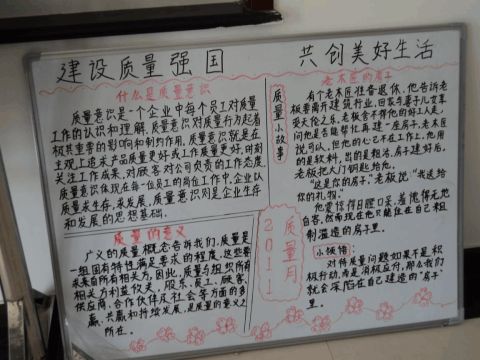 建设质量强国
共创美好生活
什么是质量意识
质量意识是一个企业中每个员工对质量
工作的认识和理解。质量意识对质量行为起着
极其重要的影响和制约作用。质量意识就是在
主观上追求产品质量更好或工作质量更好,时刻
关注工作成果,对顾客对公司负责的工作态度
质量意识体现在每一位员工的岗位工作中,企业以
质量求生存,求发展,质量意识则是企业生存
和发展的思想基础。
质量的意义
广义的质量概念告诉我们,质量是
一组固有特性满足要求的程度,这些要
求来自所有相关方,因此,质量与组织所有
相关方利益攸关,股东、员工、顾客、
供应商、合作伙伴及社会等方面的多
赢、共赢和持续发展,是质量的意义之
所在。
质量小故事
质量月
2011
老木匠的房子
有个老木匠准备退休,他告诉老
板要离开建筑行业,回家与妻子儿女享
受天伦之乐。老板舍不得他的好工人走,
问他是否能帮忙再建一座房子,老木匠
说可以。但他的心已不在工作上,他用
的是软料,出的是粗活。房子建好后,
老板把大门钥匙给他。
“这是你的房子,”老板说,“我送给
你的礼物。”
他震惊得目瞪口呆,羞愧得无地
自容。然而现在他只能住在自己粗
制滥造的房子里。
小贴绪:
对待质量问题如果不是积
极行动,而是消极应付,那么我们
就会深陷在自己建造的“房子”
里。